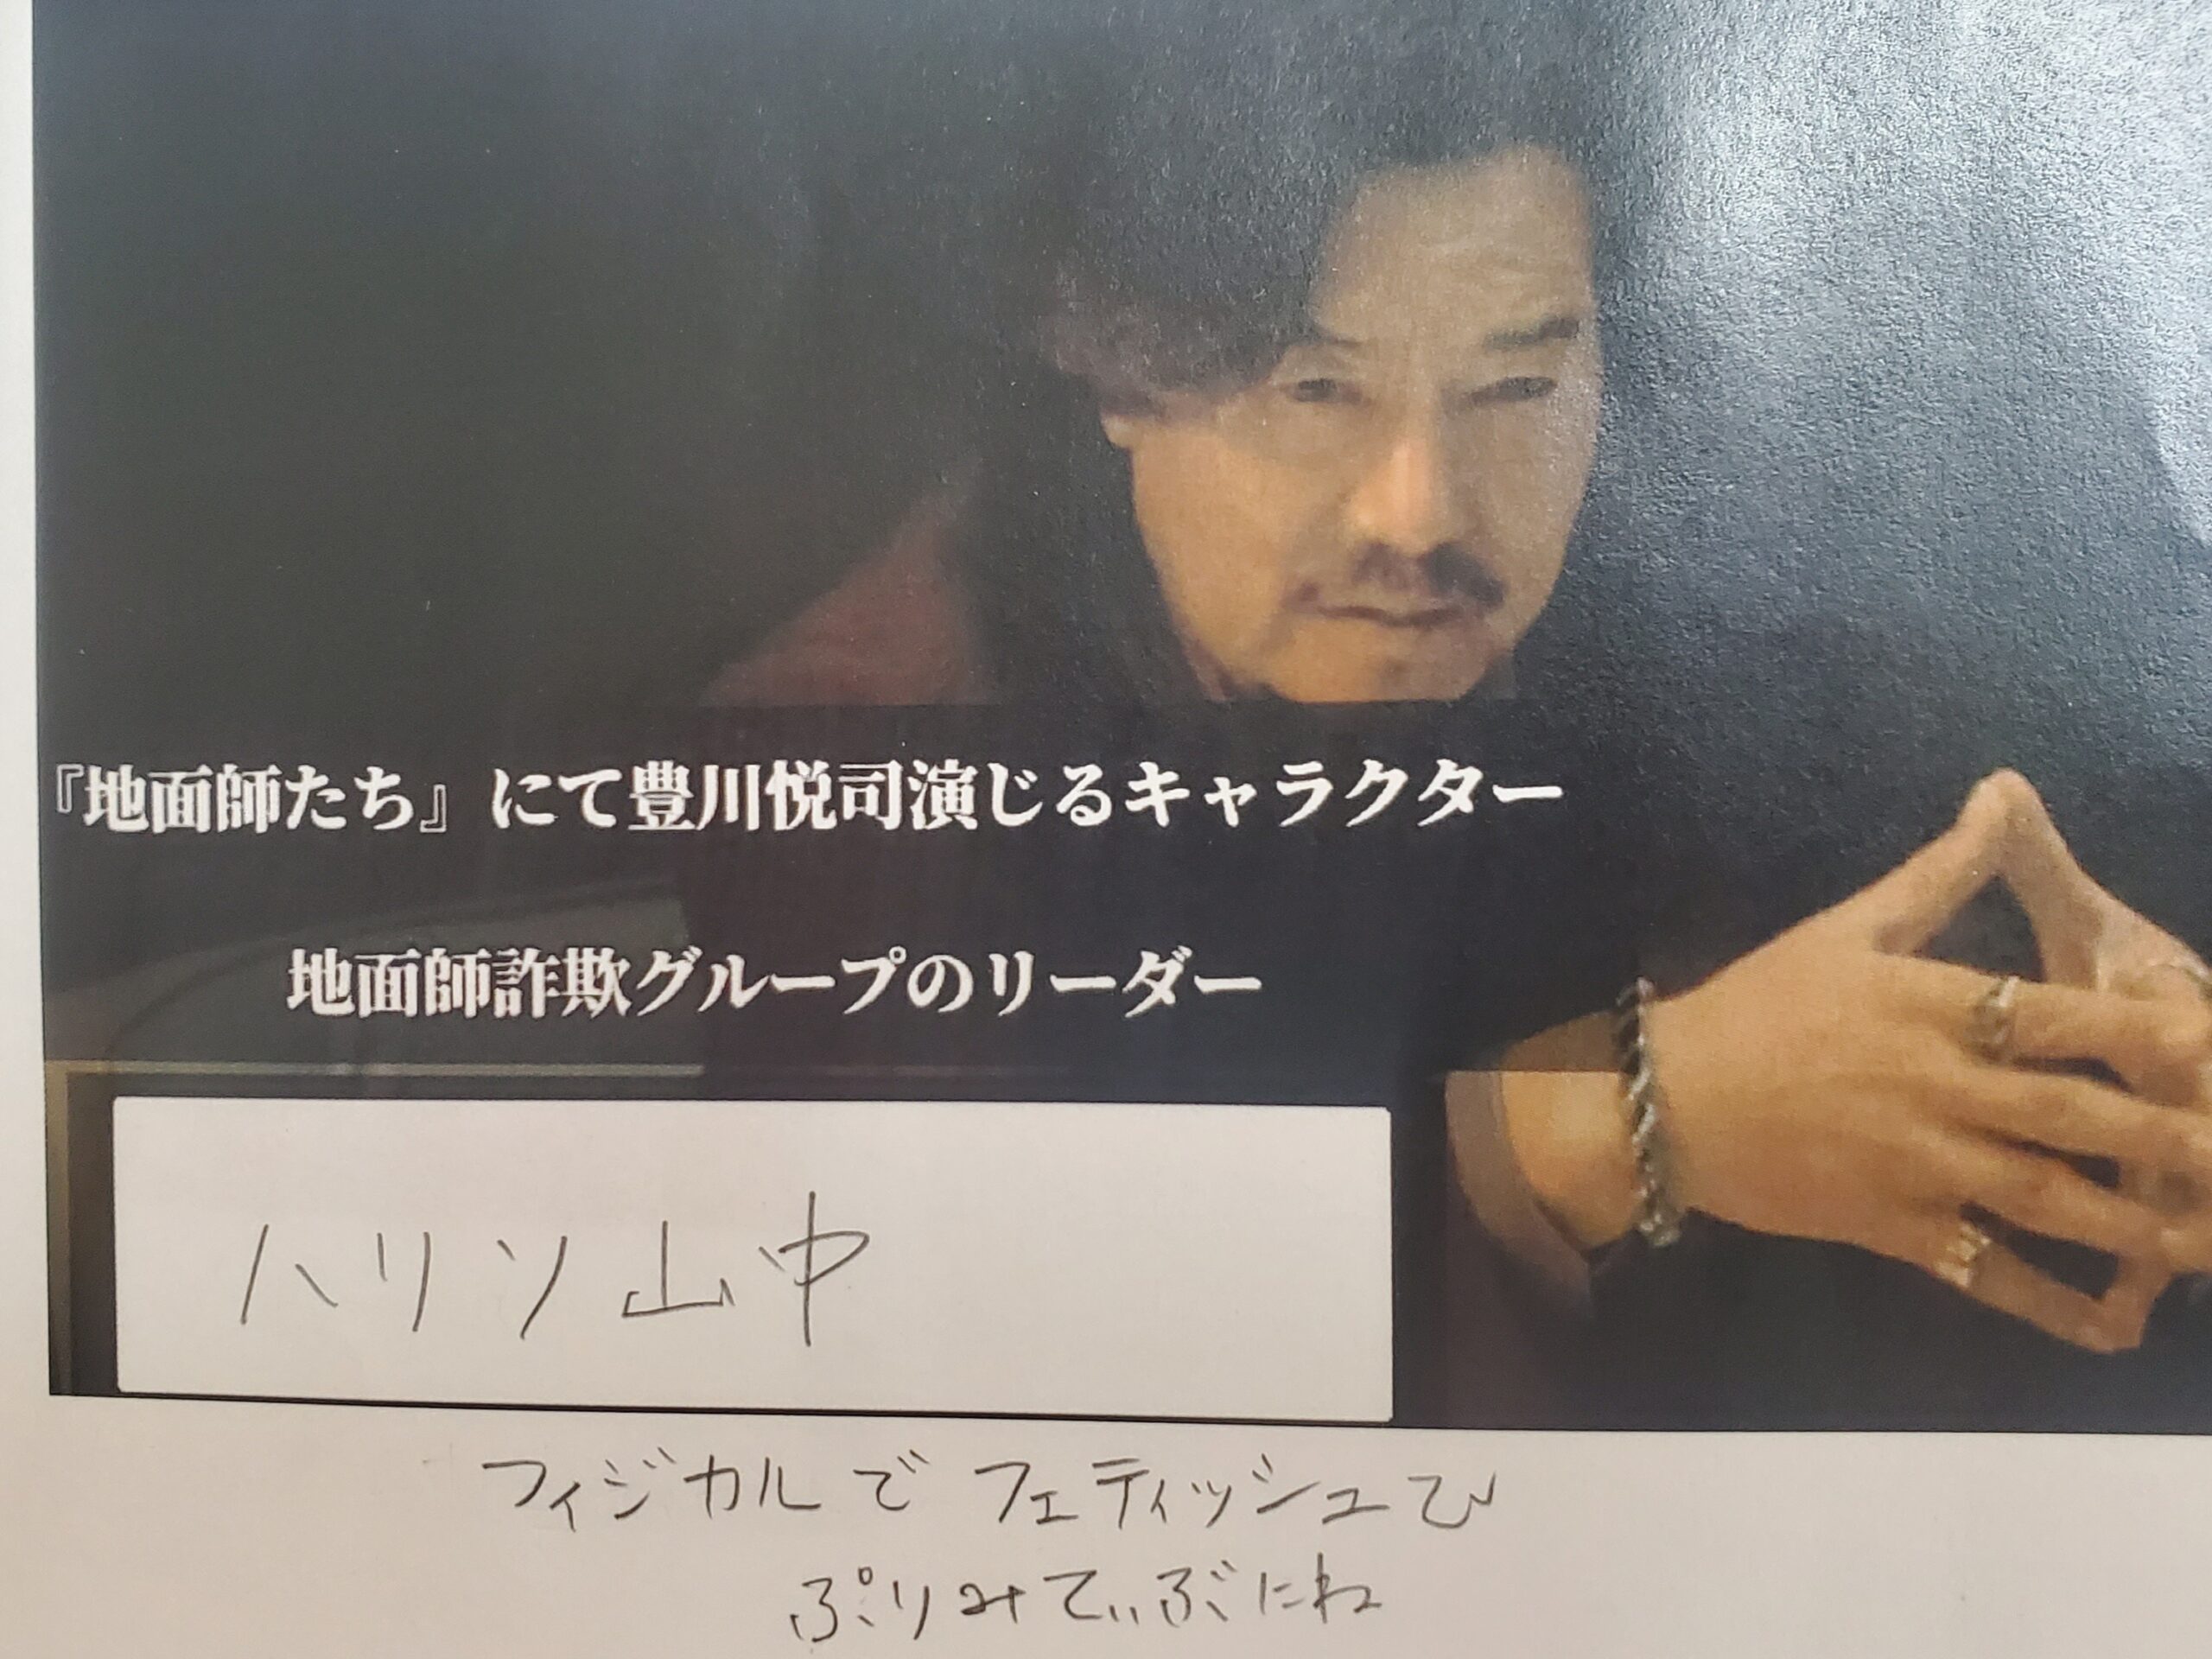 『地面師たち』にて豊川悦司演じるキャラクター
地面師詐欺グループのリーダー
ハリソ山中
フィジカルでフェティッシュで
ぷりみてぃぶにね